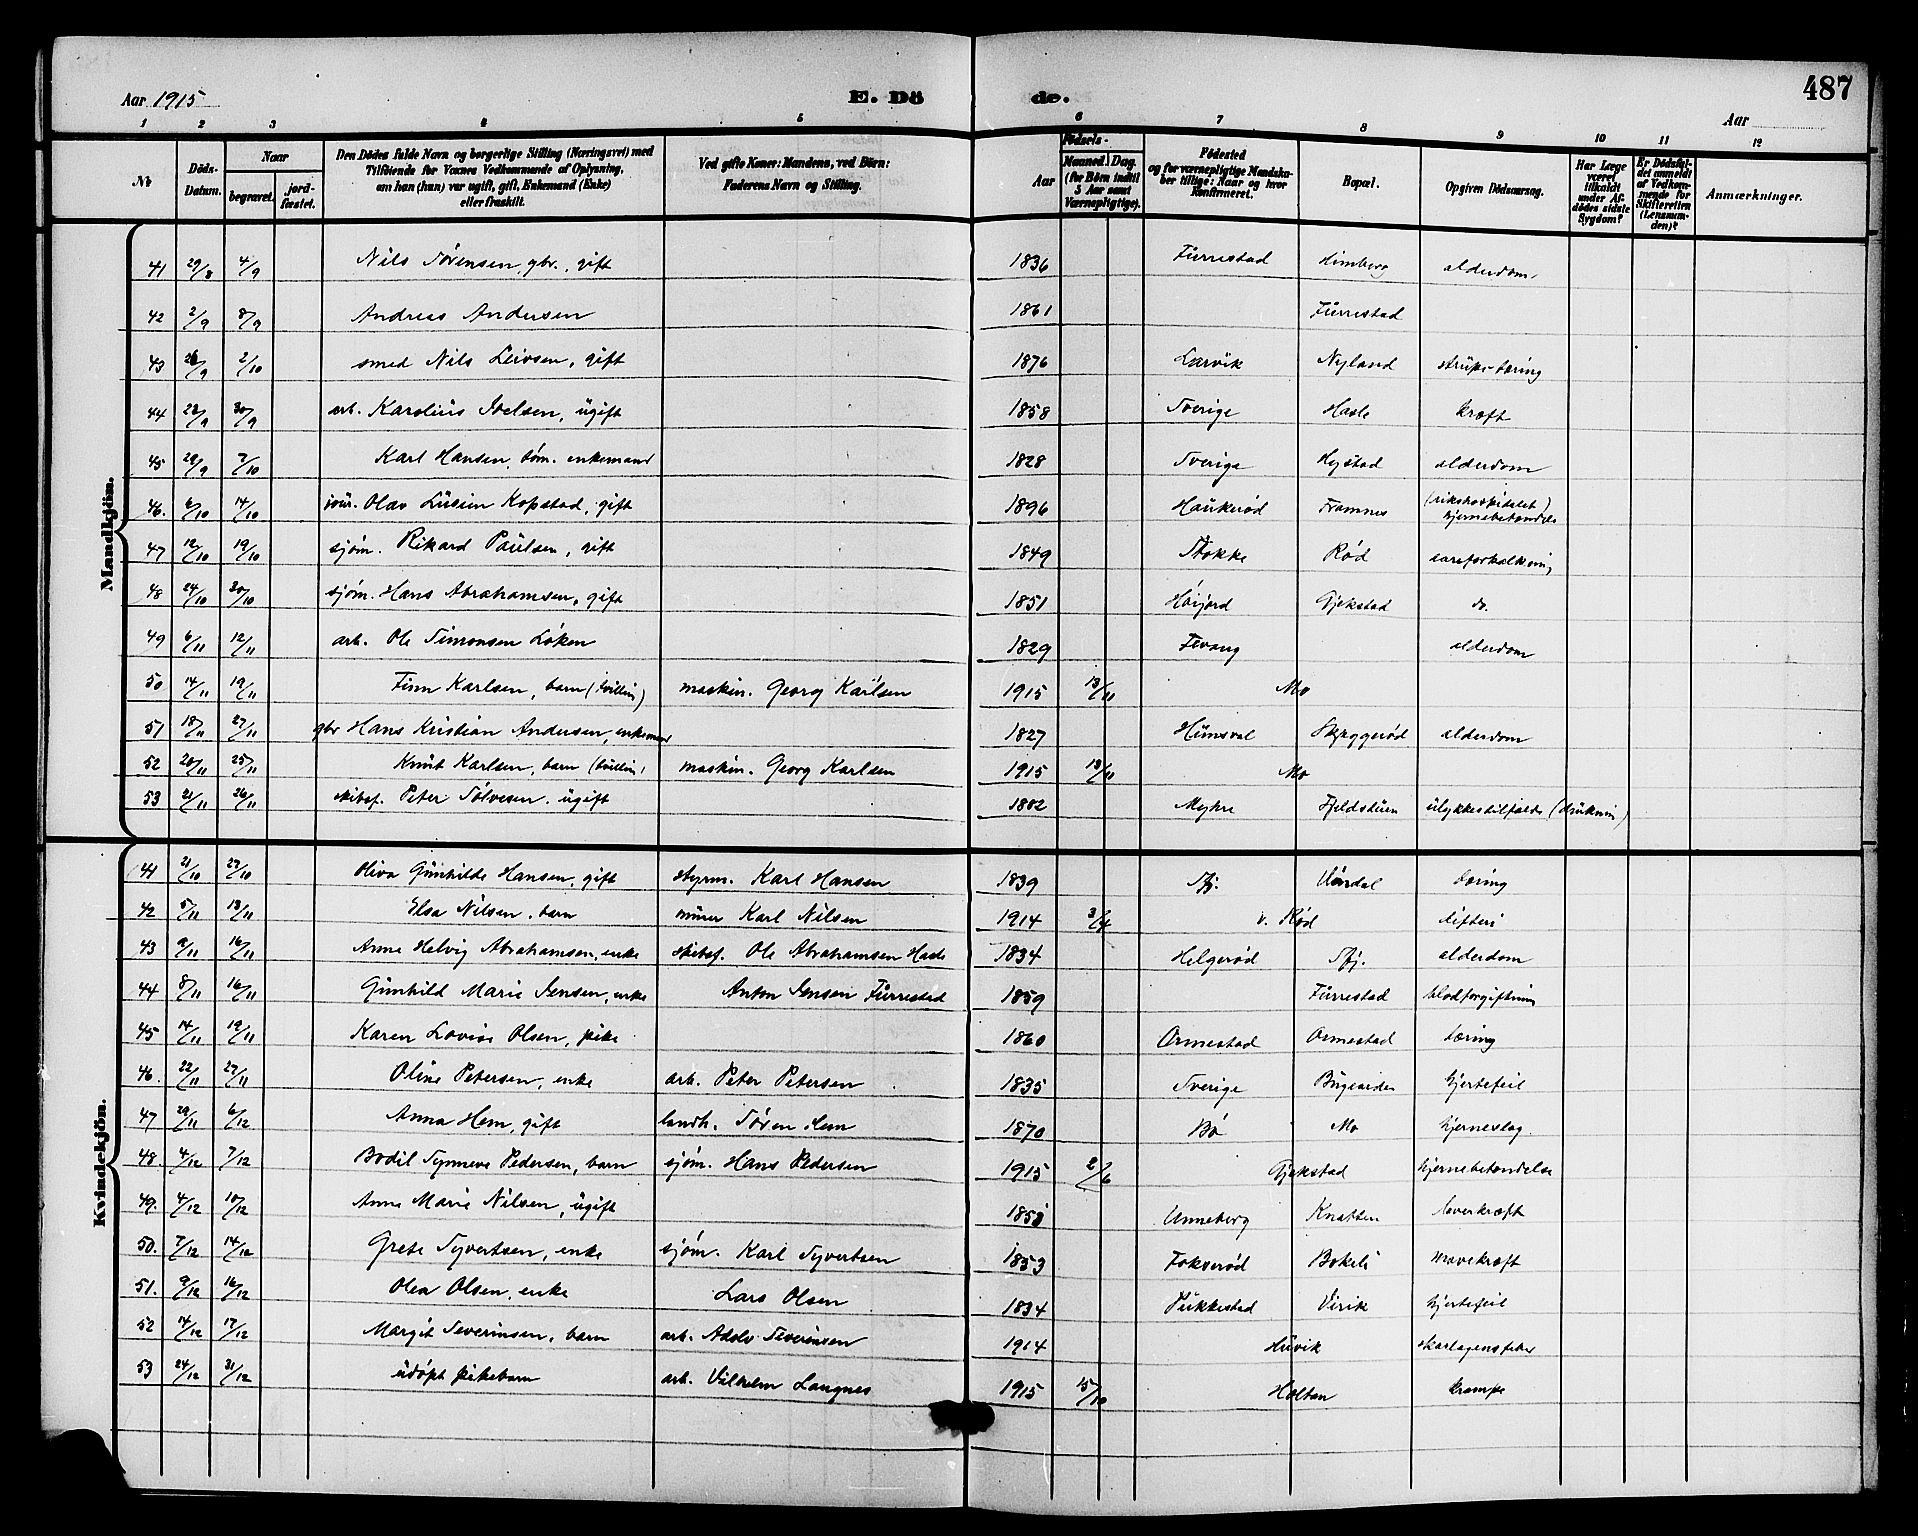 487
Aar 1915 E. Dö de. Aar
1 2 3 4 5 6 7 8 9 10 11 12
No Döds-Datum. Naar begravet. jord-fæstet. Den Dödes fulde Navn og borgerlige Stilling (Næringsvei) med Tilföiende for Voxnes Vedkommende af Oplysning, om han (hun) var ugift, gift, Enkemand (Enke) eller fraskilt. Ved gifte Koner: Mandens, ved Börn: Faderens Navn og Stilling. Födsels- Aar Maaned. Dag. (for Börn indtil 5 Aar samt Værnepligtige). Födested og for værnepligtige Mandskaber tillige: Naar og hvor Konfirmeret. Bopæl. Opgiven Dödsaarsag. Har Læge været tilkaldt under Afdödes sidste Sygdom? Er Dödsfaldet anmeldt af Vedkommende for Skifteretten (Lensmanden)? Anmærkninger.
Mandkjön.
41 29/8 4/9 Nils Sørensen, gbr., gift 1836 Furrestad Himberg alderdom
42 2/9 8/9 Andreas Andersen 1861 Furrestad
43 26/9 2/10 smed Nils Leivsen, gift 1876 Larvik Nyland strupe-tæring
44 23/9 30/9 arb. Karolius Joelsen, ugift 1858 Sverige Hasle kræft
45 29/9 7/10 Karl Hansen, tøm. enkemand 1828 Sverige Hystad alderdom
46. 6/10 14/10 jour. Olav Lusien Kopstad, gift 1896 Haukerød Framnes (rikshospitalet) hjernebetændelse
47 12/10 19/10 sjøm. Rikard Paulsen, gift 1849 Stokke Rød aareforkalkning
48 24/10 30/10 sjøm. Hans Abrahamsen, gift 1851 Høijord Gjekstad do.
49 6/11 12/11 arb. Ole Simonsen Løken 1829 Fevang alderdom
50 14/11 19/11 Finn Karlsen, barn (tvilling) maskin. Georg Karlsen 1915 13/11 Mo
51 18/11 27/11 gbr Hans Kristian Andersen, enkemand 1827 Himsval Skjeggerød alderdom
52 20/11 25/11 Knut Karlsen, barn (tvilling) maskin. Georg Karlsen 1915 13/11 Mo
53 21/11 26/11 skibsf. Peter Sølvesen. ugift 1882 Myhre Fjeldstuen ulykkestilfælde (drukning)
Kvindekjön.
41 21/10 29/10 Oliva Gunhilde Hansen, gift styrm. Karl Hansen 1839 Sfj. Unrdal tæring
42 5/11 13/11 Elsa Nilsen. barn murer Karl Nilsen 1914 3/4 v. Rød difteri
43 9/11 16/11 Anne Helvig Abrahamsen, enke skibsf. Ole Abrahamsen Hasle 1834 Helgerød Sfj. alderdom
44 8/11 16/11 Gunhild Marie Jensen, enke Anton Jensen Furrestad 1859 Furrestad blodforgiftning
45 14/11 19/11 Karen Lovise Olsen, pike 1860 Ormestad Ormestad tæring
46. 22/11 27/11 Oline Petersen, enke arb. Peter Petersen 1835 Sverige Bugaarden hjertefeil
47 29/11 6/12 Anna Hem, gift landh. Søren Hem 1870 Bø Mo hjerneslag
48. 4/12 7/12 Bodil Synneve Pedersen, barn sjøm. Hans Pedersen 1915 2/6 Gjekstad hjernebetændelse
49. 4/12 10/12 Anne Marie Nilsen, ugift 1858 Unneberg Knatten leverkræft
50. 7/12 14/12 Grete Syvertsen, enke sjøm. Karl Syvertsen 1853 Fokserød Bokeli mavekræft
51. 9/12 16/12 Olea Olsen, enke Lars Olsen 1834 Pukkestad Virik hjertefeil
52 14/12 17/12 Margit Severinsen, barn arb. Adolv Severinsen 1914 Huvik skarlagensfeber
53 24/12 31/12 udøpt pikebarn arb. Vilhelm Langnes 1915 15/10 Holtan krampe